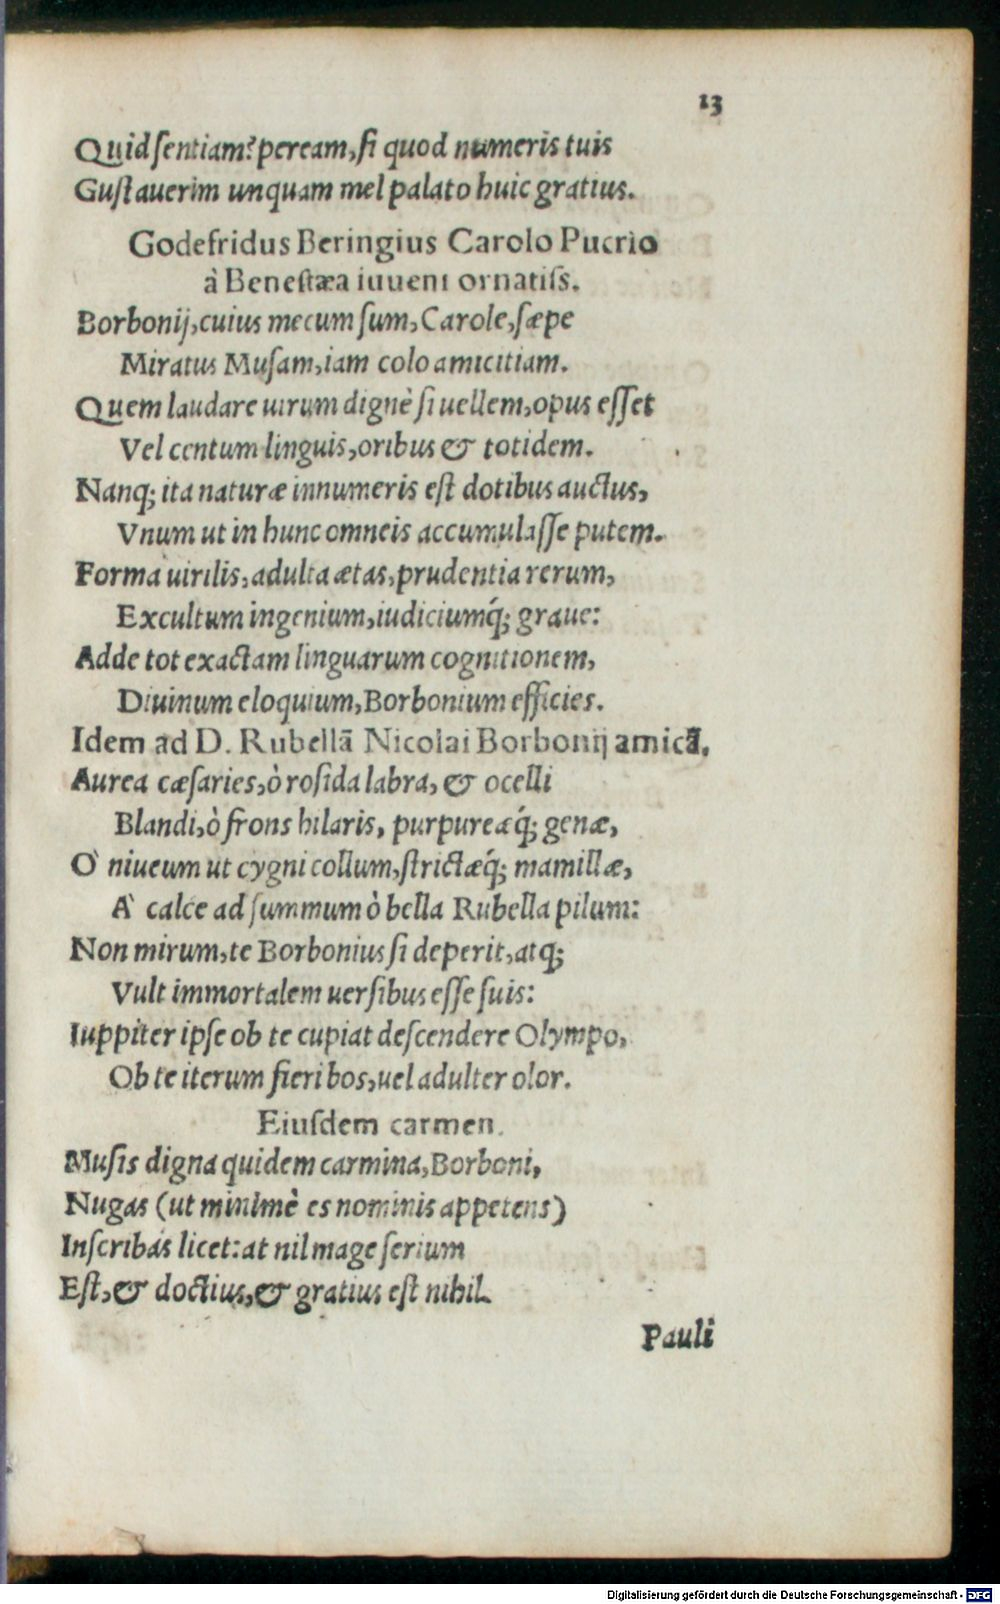 13
Quid sentiam? peream, si quod numeris tuis
Gustauerim unquam mel palato huic gratius.
Godefridus Beringius Carolo Pucrio
à Benestæa iuueni ornatiss.
Borbonij, cuius mecum sum, Carole, sæpe
Miratus Musam, iam colo amicitiam.
Quem laudare uirum dignè si uellem, opus esset
Vel centum linguis, oribus & totidem.
Nanq; ita naturæ innumeris est dotibus auctus,
Vnum ut in hunc omneis accumulasse putem.
Forma uirilis, adulta ætas, prudentia rerum,
Excultum ingenium, iudiciumq́; graue:
Adde tot exactam linguarum cognitionem,
Diuinum eloquium, Borbonium efficies.
Idem ad D. Rubellã Nicolai Borbonij amicã.
Aurea cæsaries, ò rosida labra, & ocelli
Blandi, ò frons hilaris, purpureæq́; genæ,
Ò niueum ut cygni collum, strictæq́; mamillæ,
À calce ad summum ò bella Rubella pilum:
Non mirum, te Borbonius si deperit, atq;
Vult immortalem uersibus esse suis:
Iuppiter ipse ob te cupiat descendere Olympo,
Ob te iterum fieri bos, uel adulter olor.
Eiusdem carmen.
Musis digna quidem carmina, Borboni,
Nugas (ut minimè es nominis appetens)
Inscribas licet: at nil mage serium
Est, & doctius, & gratius est nihil.
Pauli
Digitalisierung gefördert durch die Deutsche Forschungsgemeinschaft - DFG